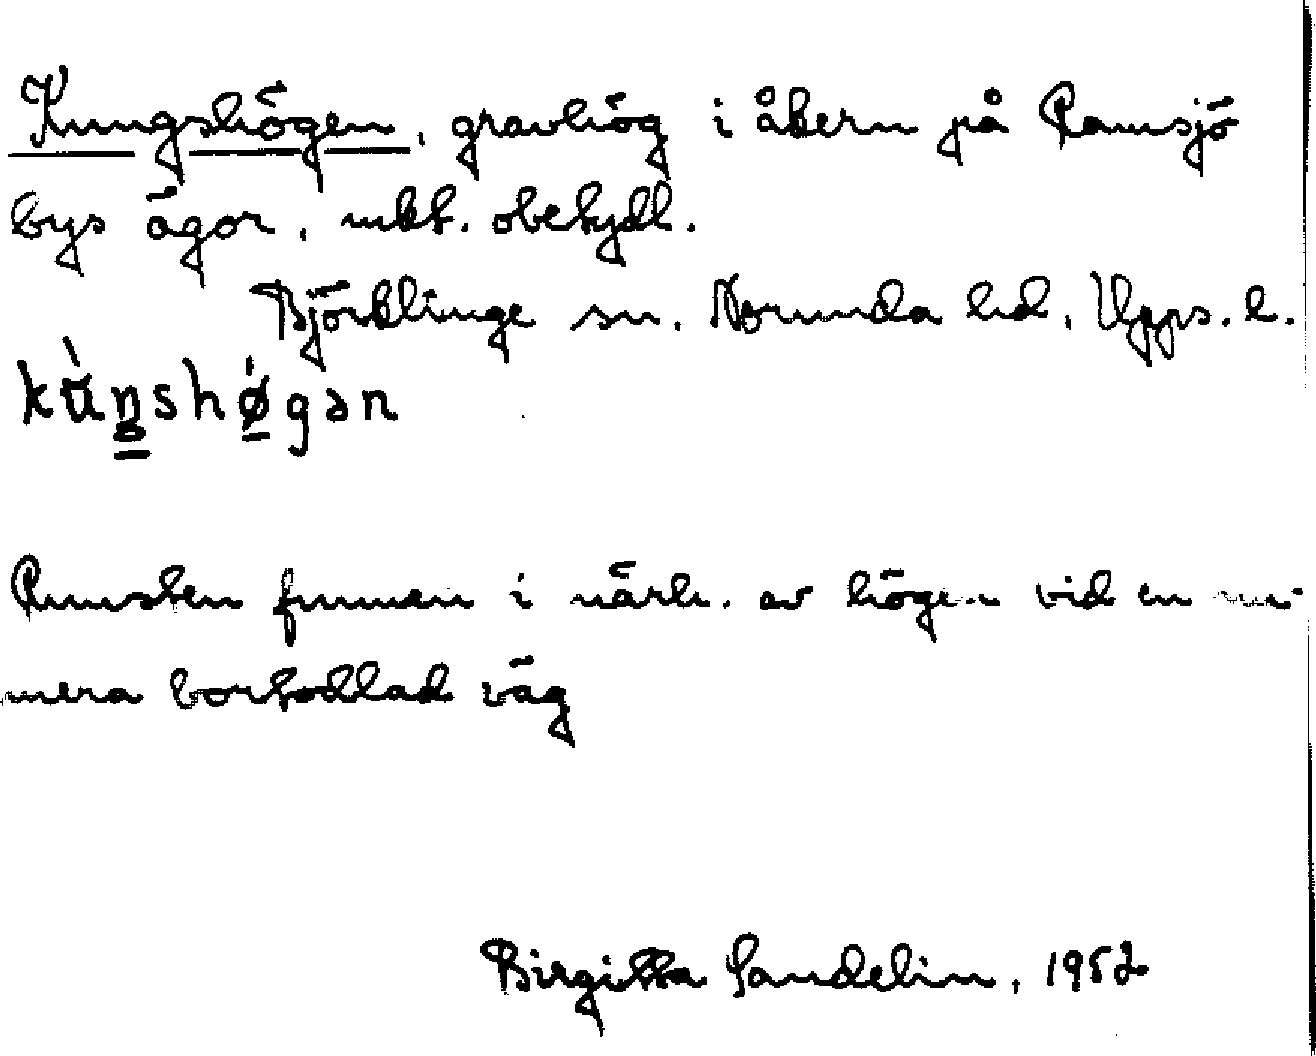 Kungshögen, gravhög i åkern på Ramsjö
bys ägor, mkt. obetydl.
Björklinge sn. Norunda hd, Upps. l.
kùŋshǿgən
Runsten funnen i närh. av högen vid en nu-
mera bortodlad väg
Birgitta Sandelin, 1952